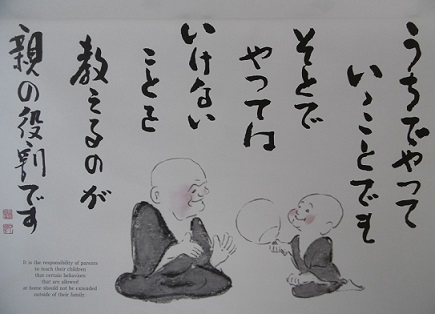 うちでやって
いゝことでも
そとで
やっては
いけない
ことを
教えるのが
親の役割です
It is the responsibility of parents
to teach their children
that certain behaviors
that are allowed
at home should not be extended
outside of their family.